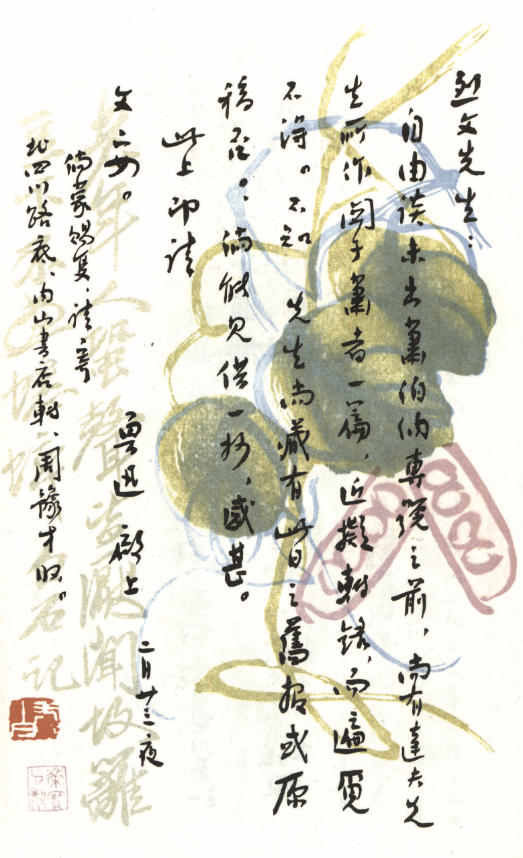 烈文先生：
自由談未出蕭伯納專號之前，尚有達夫先
生所作関于蕭者一篇，近擬轉錄，而遍覓
不得。不知 先生尚藏有此日之舊報或原
稿否？：倘能見借一抄，感甚。
此上卽請
文安。
魯迅 啟上 二月廿三夜
倘蒙賜覆，請寄
北四川路底，內山書店轉，周豫才収。
石記